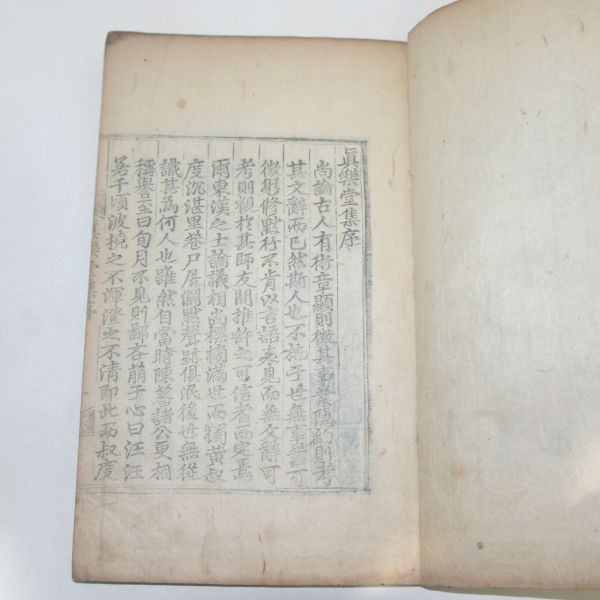 眞樂堂集序
尙論古人有術章顯則徵其事業隱約則考
其文辭而已然斯人也不施于世無事業可
徵躬修默行不肯以言語表見而無文辭可
考則顧於其師友間推許之可信者而定焉
爾東漢之士論議相尙標榜滿世而獨黃叔
度沉湛里巷尸居淵默聲跡俱泯後世無從
識其爲何人也雖然自當時陳蕃諸公更相
稱譽至曰旬月不見則鄙吝萠于心曰汪汪
若千頃波撓之不渾澄之不淸卽此而叔度